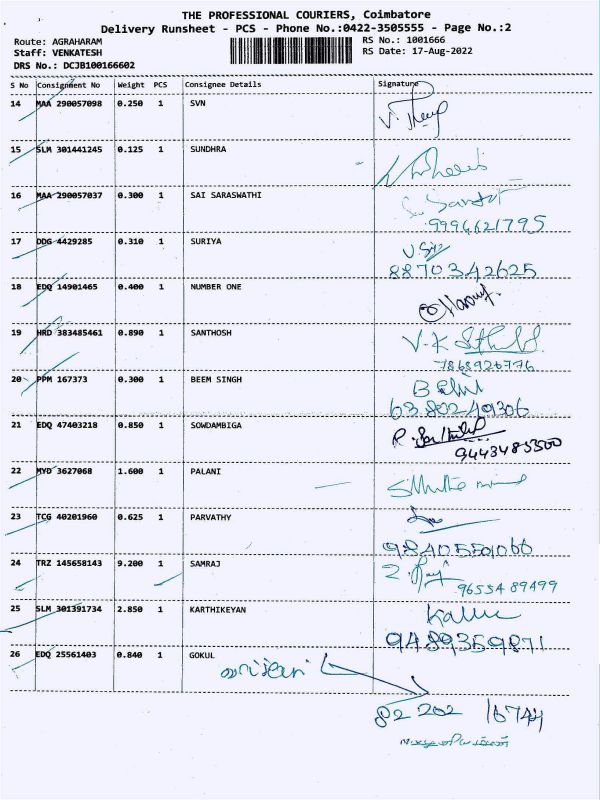 THE PROFESSIONAL COURIERS, Coimbatore
Delivery Runsheet - PCS - Phone No.:0422-3505555 - Page No.:2
Route: AGRAHARAM RS No.: 1001666
Staff: VENKATESH RS Date: 17-Aug-2022
DRS No.: DCJB100166602
S No Consignment No Weight PCS Consignee Details Signature
14 MAA 290057098 0.250 1 SVN
15 SLM 301441245 0.125 1 SUNDHRA
16 MAA 290057037 0.300 1 SAI SARASWATHI
9994621795
17 DDG 4429285 0.310 1 SURIYA
8870342625
18 EDQ 14901465 0.400 1 NUMBER ONE
19 HRD 383485461 0.890 1 SANTHOSH
7868926776
20 PPM 167373 0.300 1 BEEM SINGH
6380249306
21 EDQ 47403218 0.850 1 SOWDAMBIGA
9443485500
22 MYD 3627068 1.600 1 PALANI
23 TCG 40201960 0.625 1 PARVATHY
9840550066
24 TRZ 145658143 9.200 1 SAMRAJ
9655489499
25 SLM 301391734 2.850 1 KARTHIKEYAN
9489359871
26 EDQ 25561403 0.840 1 GOKUL
82 202 16744